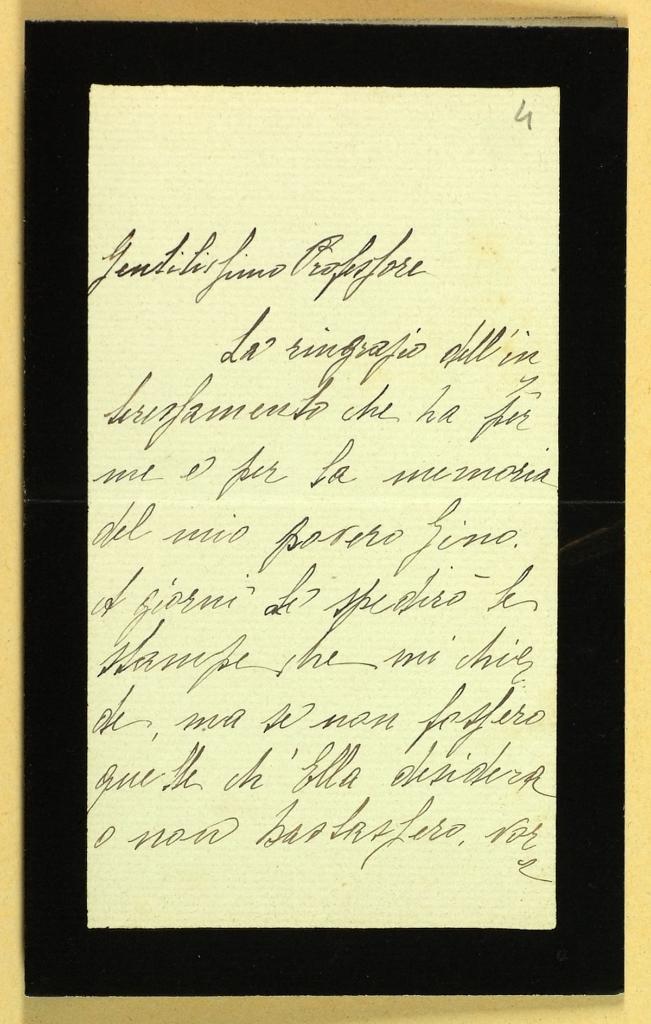 4
Gentilissimo Professore
La ringrazio dell'in
teressamento che ha per
me e per la memoria
del mio povero Gino.
A giorni Le spedirò le
stampe che mi chie
de, ma se non fossero
quelle ch'Ella desidera
o non bastassero, vor